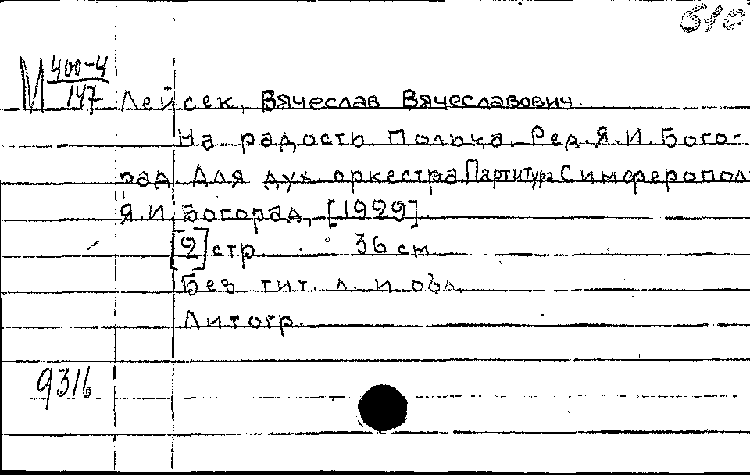 610
М 400-4
147
Лейсек, Вячеслав Вячеславович.
На радость. Полька. Ред. Я.И. Бого-
рад. Для дух. оркестра. Партитура. Симферополь,
Я.И. Богорад, [1929].
[2] стр. 36 см.
Без тит. л. и обл.
Литогр.
9316